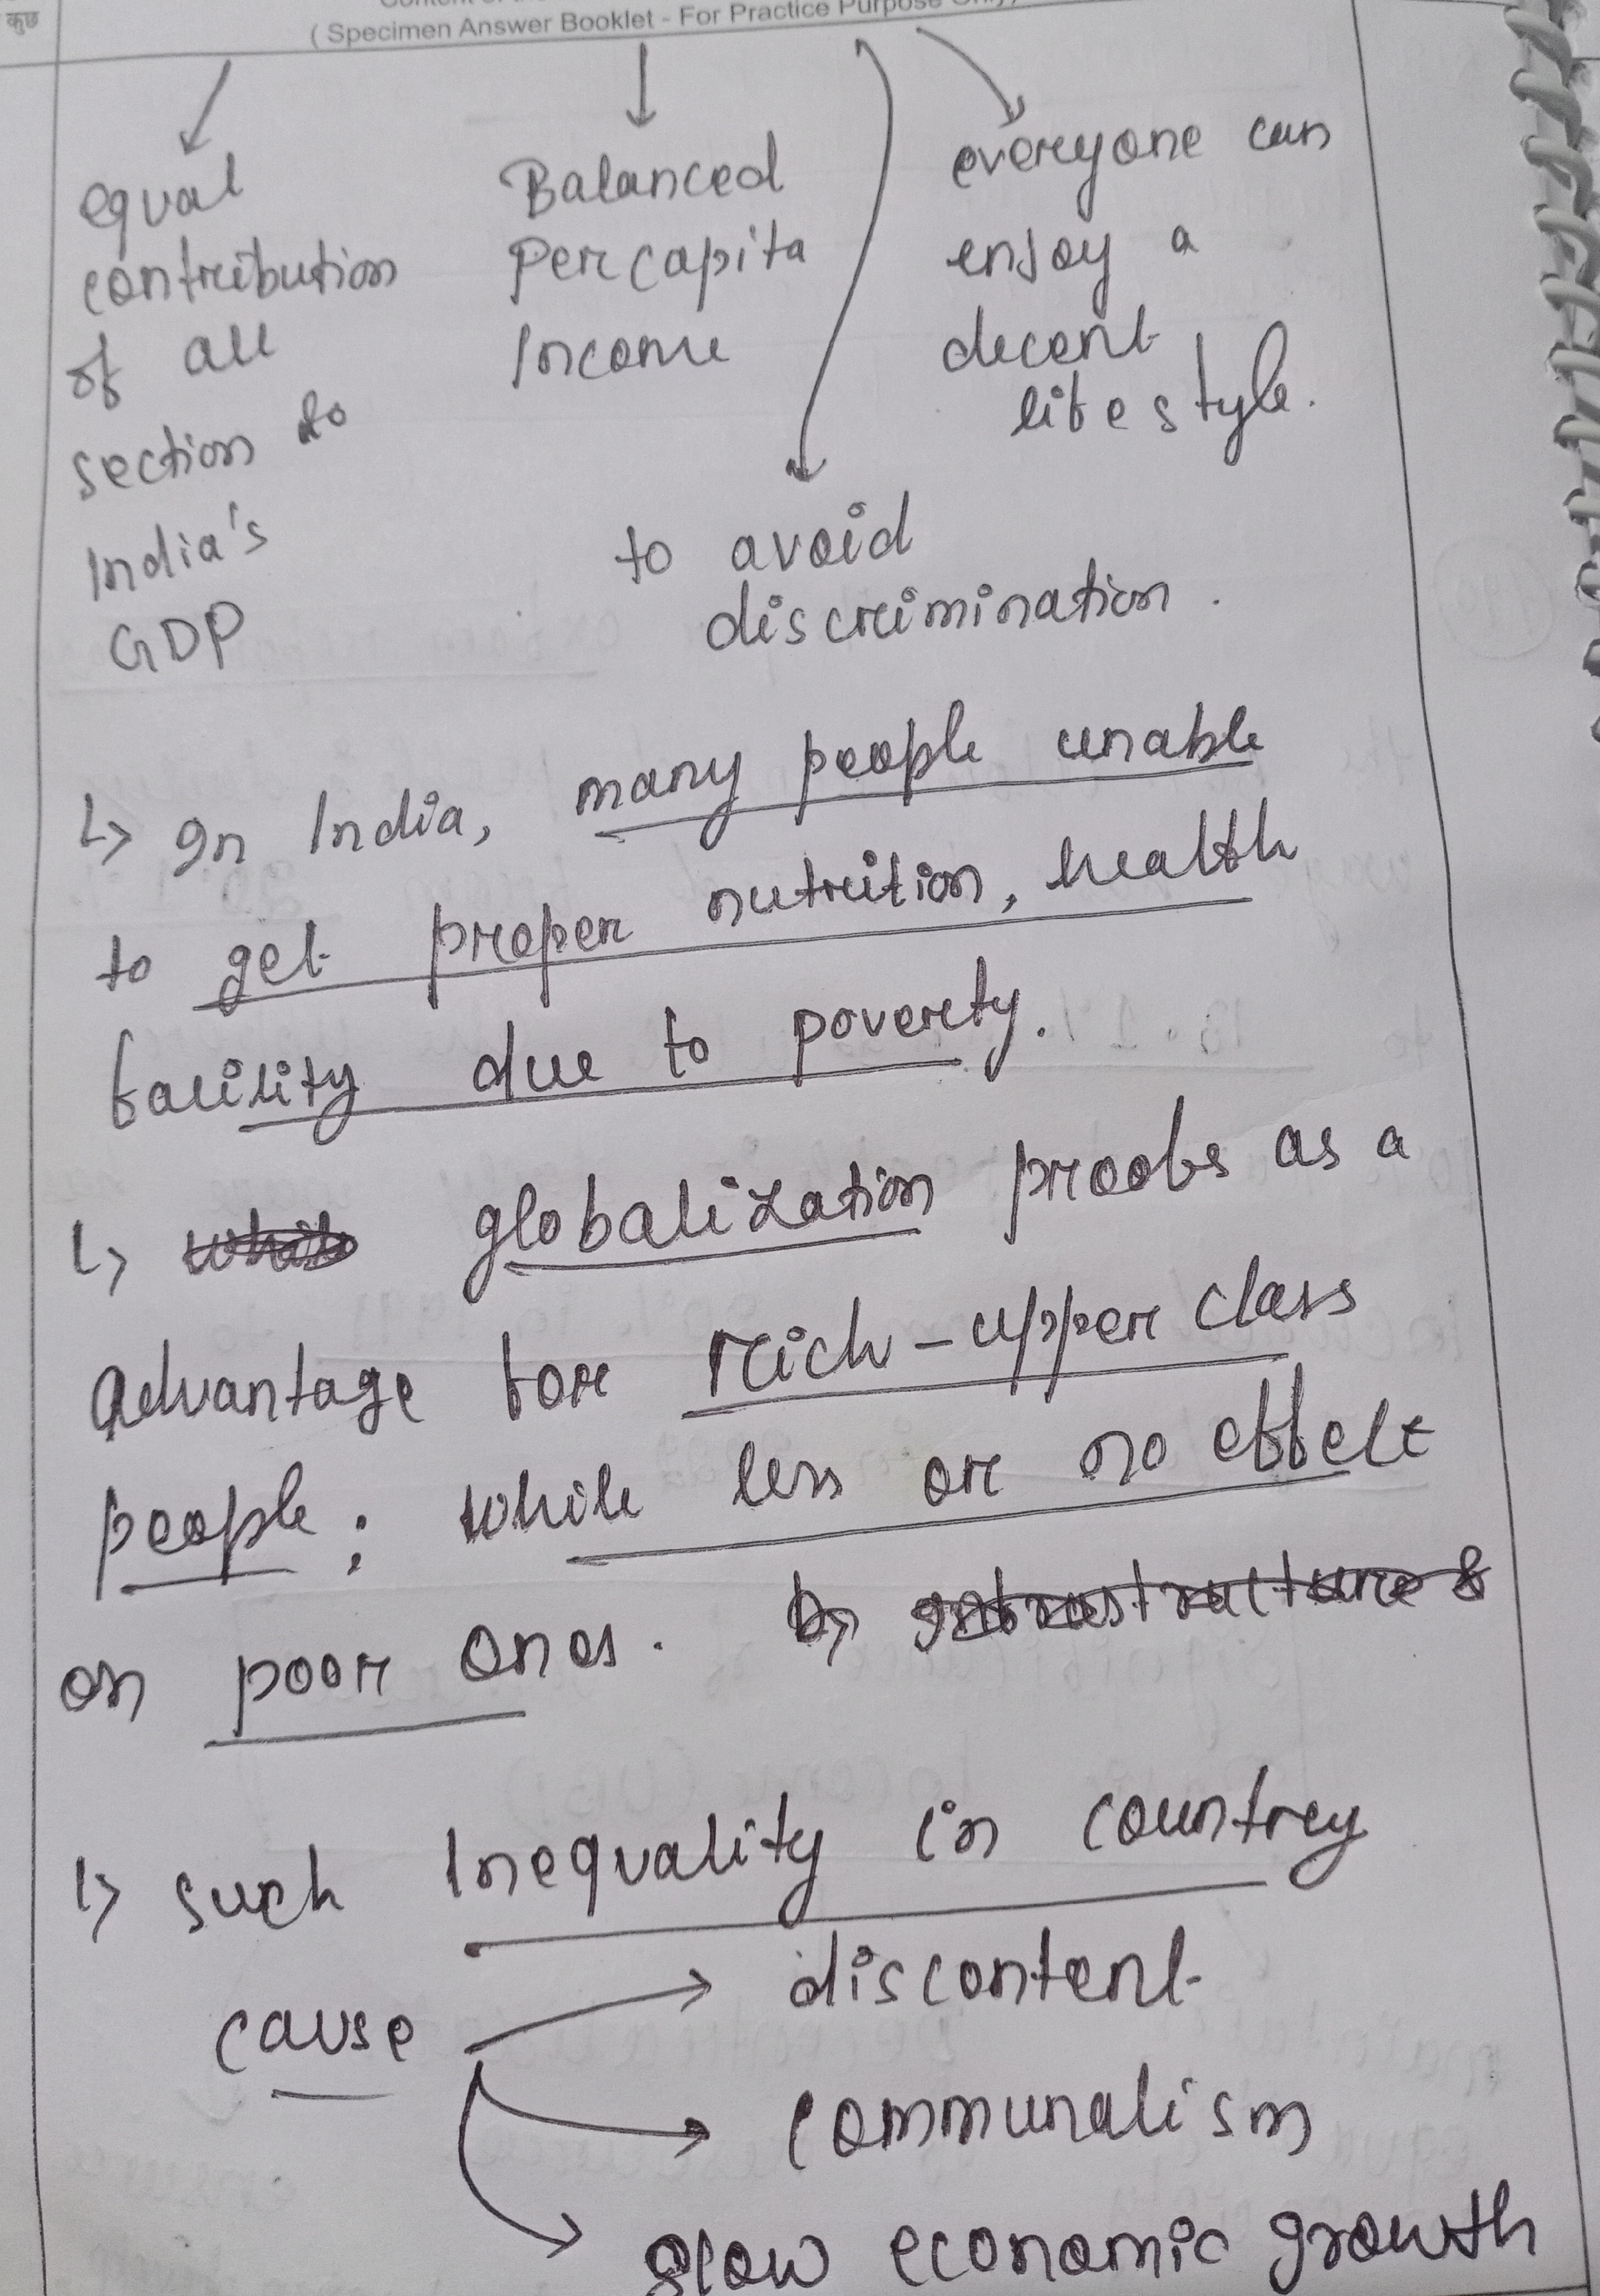 कुछ
( Specimen Answer Booklet - For Practice Purpose Only)
equal
contribution
of all
section to
India's
GDP
Balanced
Per capita
Income
everyone can
enjoy a
decent
lifestyle.
to avoid
discrimination.
↳ In India, many people unable
to get proper nutrition, health
facility due to poverty.
↳ globalization proofs as a
Advantage for rich-upper class
people; while less or no effect
on poor ones.
↳ such Inequality in country
cause → discontent
→ communalism
→ slow economic growth